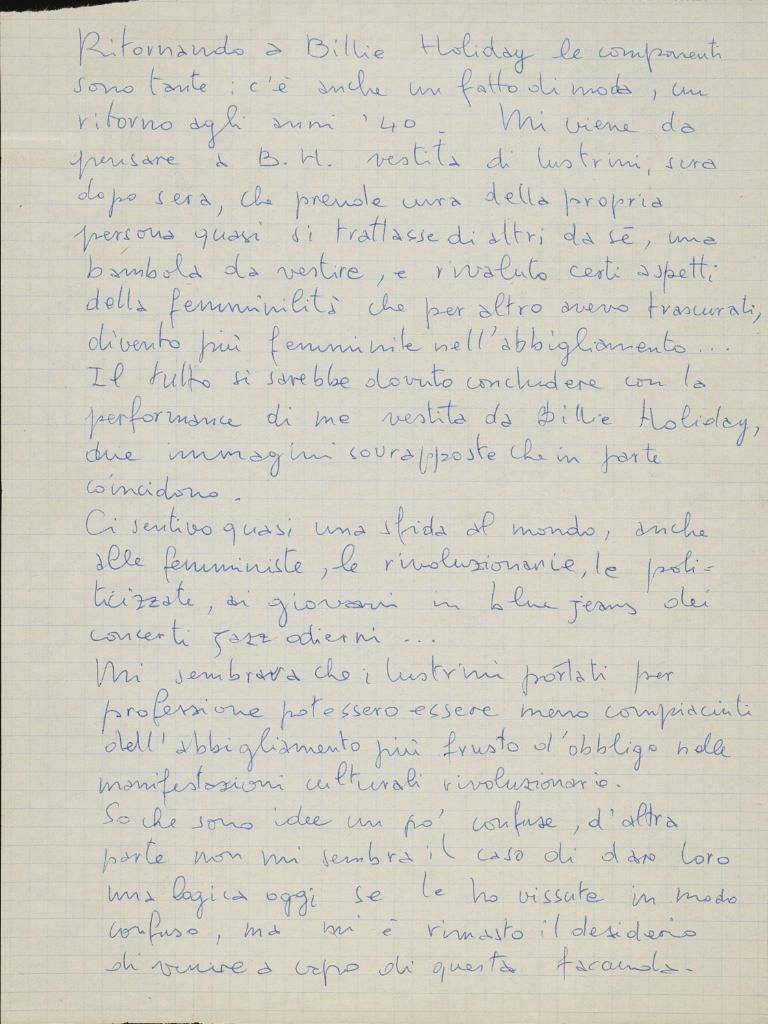 Ritornando a Billie Holiday le componenti
sono tante : c'è anche un fatto di moda, un
ritorno agli anni '40. Mi viene da
pensare a B.H. vestita di lustrini, sera
dopo sera, che prende cura della propria
persona quasi si trattasse di altri da sé, una
bambola da vestire, e rivaluto certi aspetti
della femminilità che per altro avevo trascurati,
divento più femminile nell'abbigliamento...
Il tutto si sarebbe dovuto concludere con la
performance di me vestita da Billie Holiday,
due immagini sovrapposte che in parte
coincidono.
Ci sentivo quasi una sfida al mondo, anche
alle femministe, le rivoluzionarie, le poli=
ticizzate, ai giovani in blue jeans dei
concerti jazz odierni ...
Mi sembrava che i lustrini portati per
professione potessero essere meno compiaciuti
dell'abbigliamento più frusto d'obbligo nelle
manifestazioni culturali rivoluzionarie.
So che sono idee un po' confuse, d'altra
parte non mi sembra il caso di dare loro
una logica oggi se le ho vissute in modo
confuso, ma mi è rimasto il desiderio
di venire a capo di questa faccenda.